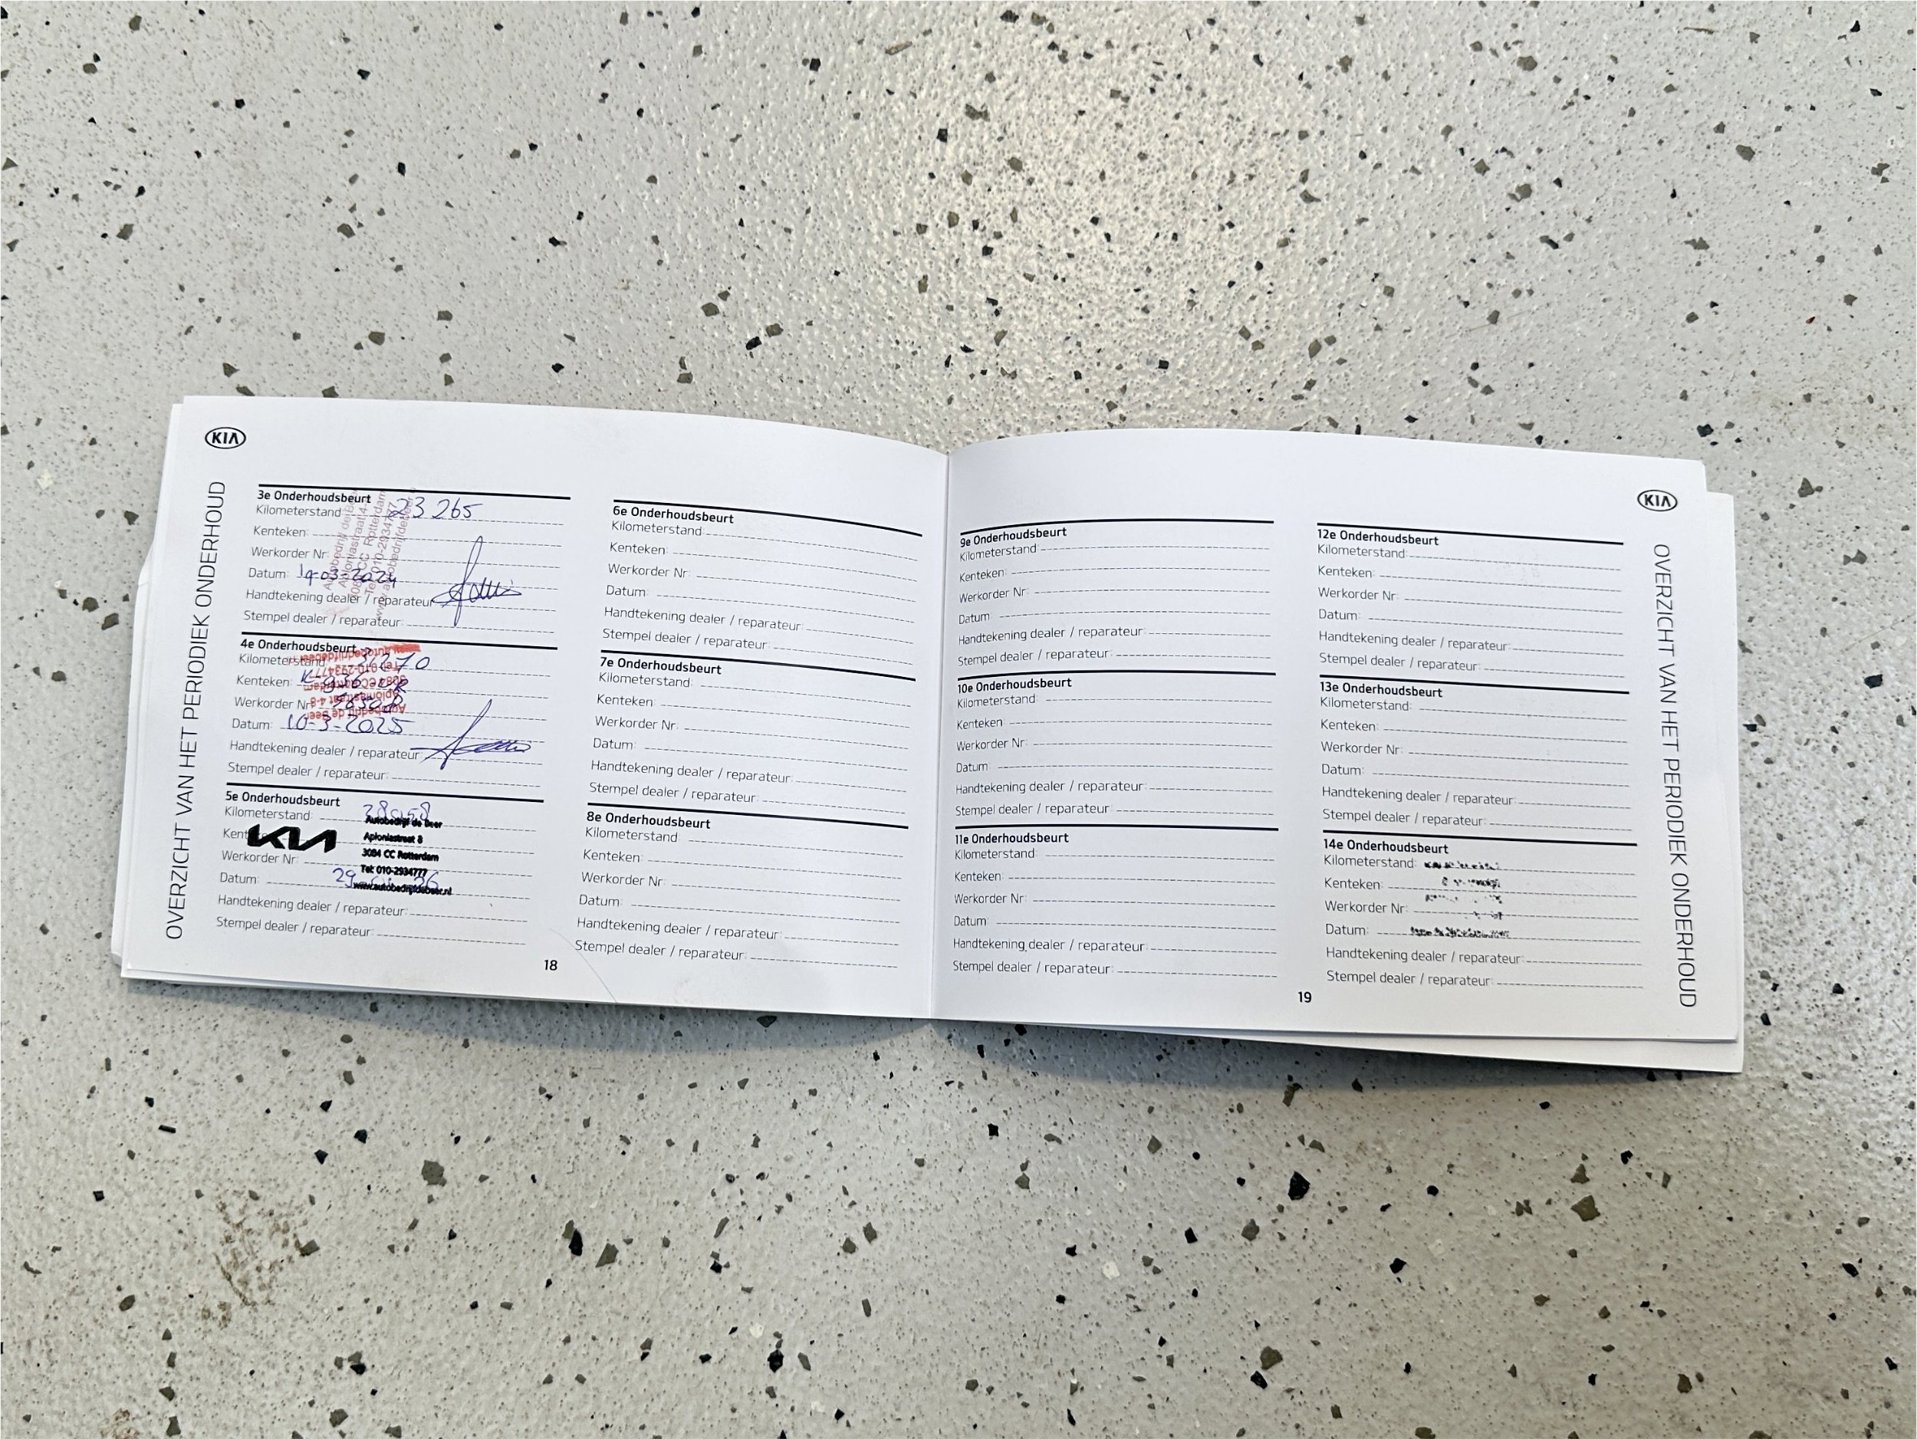 KIA
OVERZICHT VAN HET PERIODIEK ONDERHOUD
3e Onderhoudsbeurt
Kilometerstand: 23 265
Kenteken:
Werkorder Nr:
Datum: 19-03-2024
Handtekening dealer / reparateur:
Stempel dealer / reparateur:
Autobedrijf de Beer
Aploniastraat 4-8
3084 CC Rotterdam
Tel: 010-2934777
www.autobedrijfdebeer.nl
4e Onderhoudsbeurt
Kilometerstand
Kenteken:
Werkorder Nr:
Datum: 10-3-2025
Handtekening dealer / reparateur:
Stempel dealer / reparateur:
Autobedrijf de Beer
Aploniastraat 4-8
3084 CC Rotterdam
Tel: 010-2934777
www.autobedrijfdebeer.nl
5e Onderhoudsbeurt
Kilometerstand:
Werkorder Nr:
Datum: 29
Handtekening dealer / reparateur:
Stempel dealer / reparateur:
KIA
Autobedrijf de Beer
Aploniastraat 8
3084 CC Rotterdam
Tel: 010-2934777
www.autobedrijfdebeer.nl
6e Onderhoudsbeurt
Kilometerstand:
Kenteken:
Werkorder Nr:
Datum:
Handtekening dealer / reparateur:
Stempel dealer / reparateur:
7e Onderhoudsbeurt
Kilometerstand:
Kenteken:
Werkorder Nr:
Datum:
Handtekening dealer / reparateur:
Stempel dealer / reparateur:
8e Onderhoudsbeurt
Kilometerstand:
Kenteken:
Werkorder Nr:
Datum:
Handtekening dealer / reparateur:
Stempel dealer / reparateur:
18
9e Onderhoudsbeurt
Kilometerstand:
Kenteken:
Werkorder Nr:
Datum:
Handtekening dealer / reparateur:
Stempel dealer / reparateur:
10e Onderhoudsbeurt
Kilometerstand:
Kenteken:
Werkorder Nr:
Datum:
Handtekening dealer / reparateur:
Stempel dealer / reparateur:
11e Onderhoudsbeurt
Kilometerstand:
Kenteken:
Werkorder Nr:
Datum:
Handtekening dealer / reparateur:
Stempel dealer / reparateur:
12e Onderhoudsbeurt
Kilometerstand:
Kenteken:
Werkorder Nr:
Datum:
Handtekening dealer / reparateur:
Stempel dealer / reparateur:
13e Onderhoudsbeurt
Kilometerstand:
Kenteken:
Werkorder Nr:
Datum:
Handtekening dealer / reparateur:
Stempel dealer / reparateur:
14e Onderhoudsbeurt
Kilometerstand:
Kenteken:
Werkorder Nr:
Datum:
Handtekening dealer / reparateur:
Stempel dealer / reparateur:
19
KIA
OVERZICHT VAN HET PERIODIEK ONDERHOUD